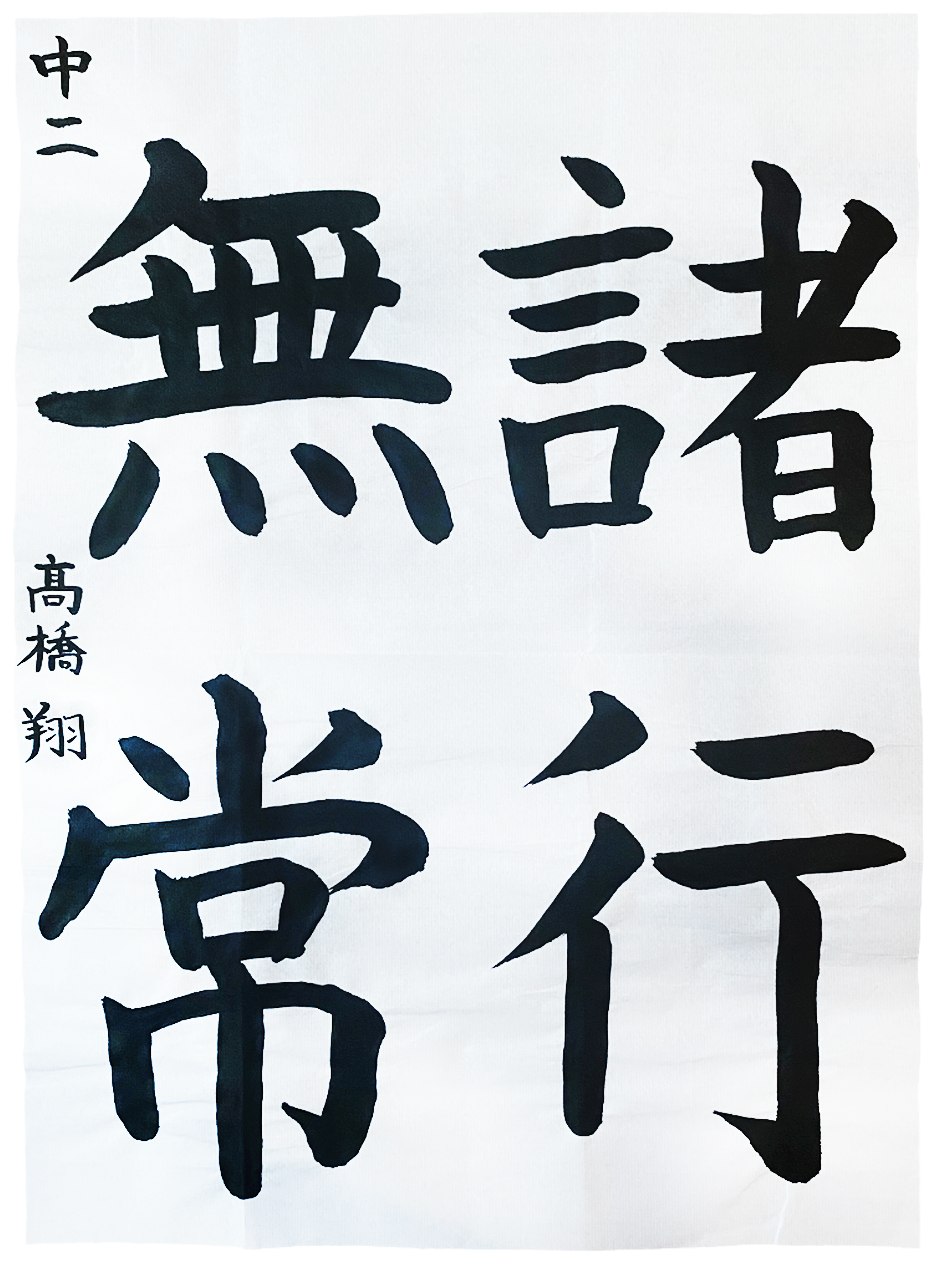 諸行
無常
中二 髙橋翔